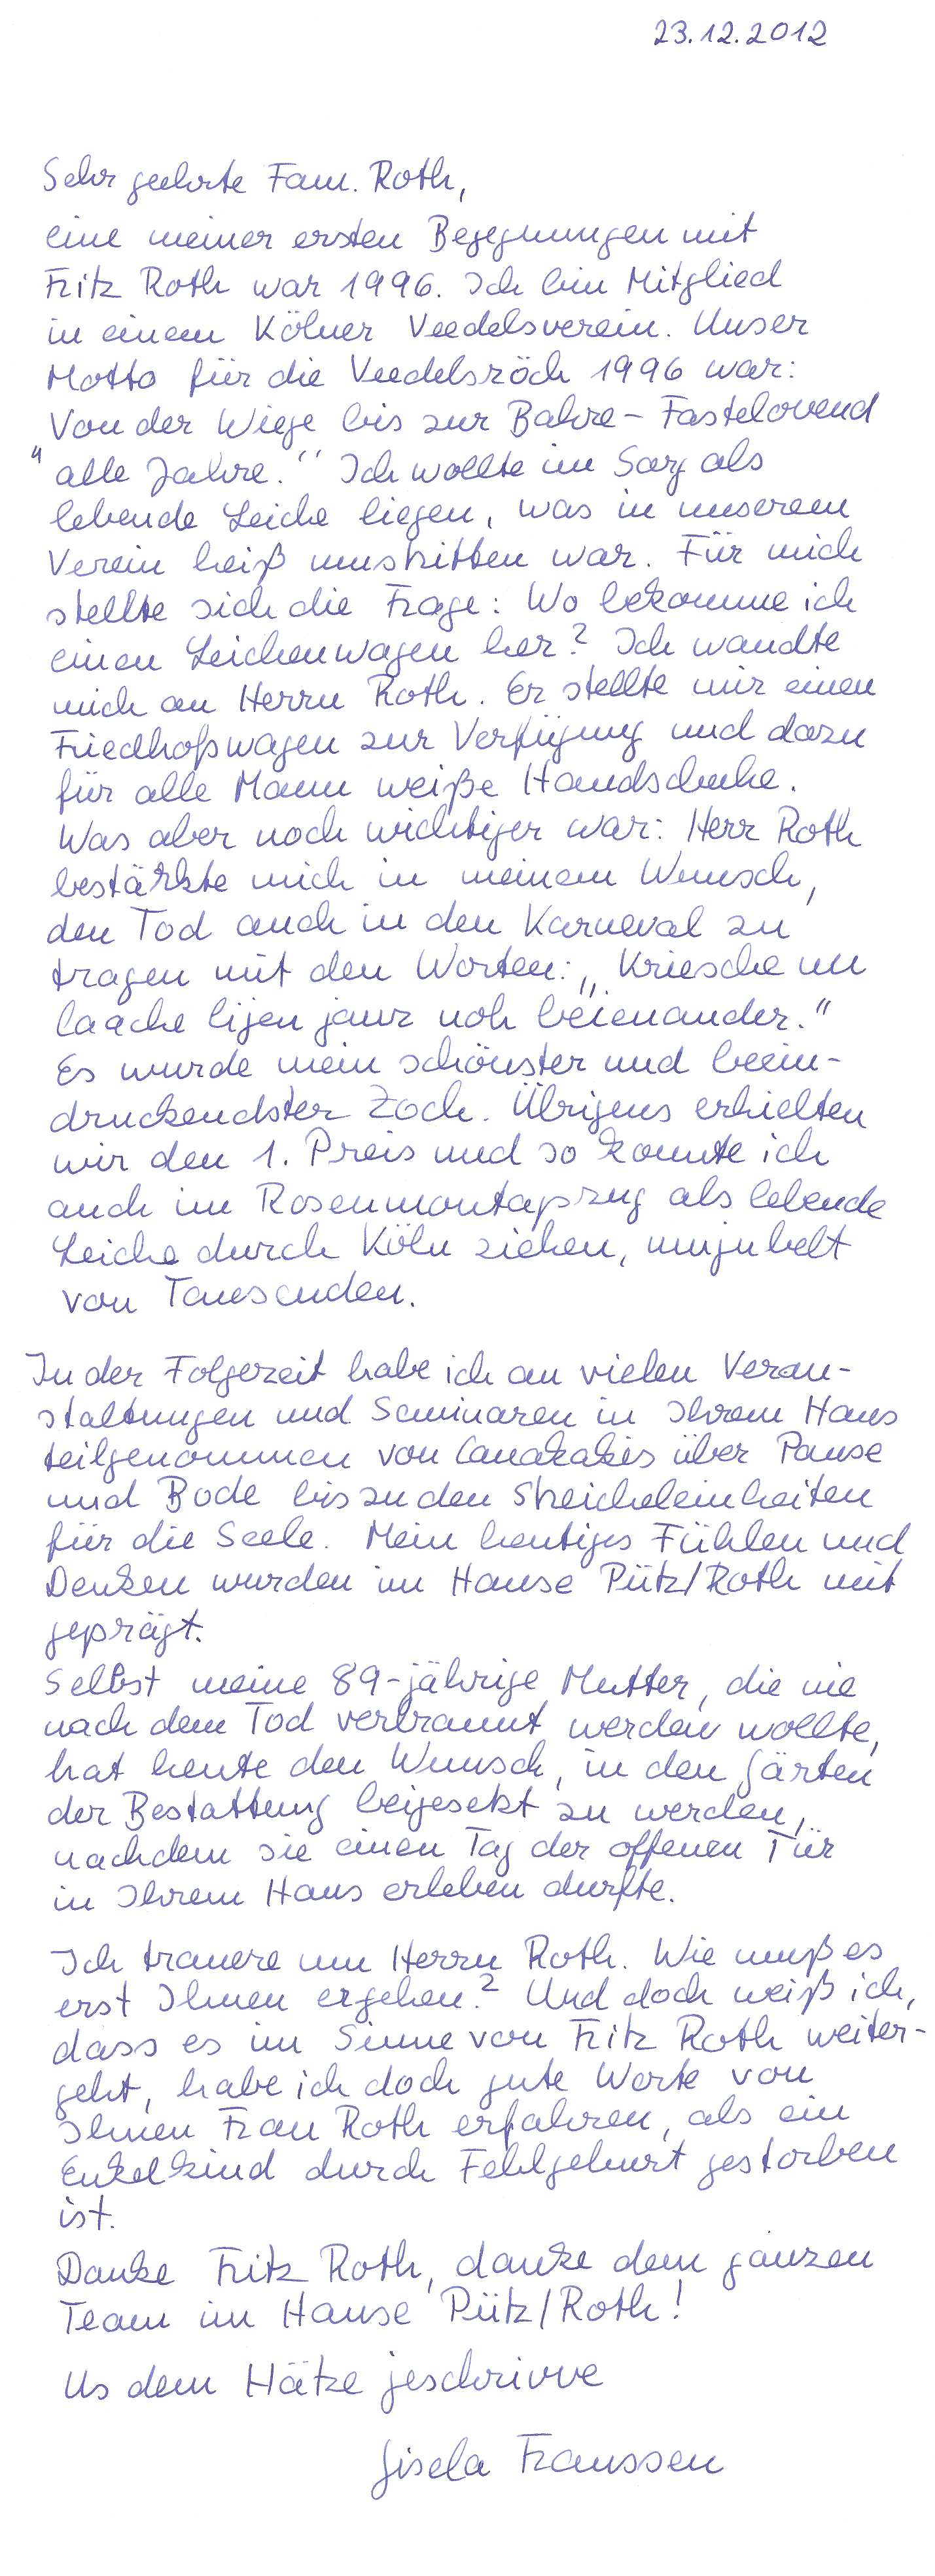 23.12.2012
Sehr geehrte Fam. Roth,
eine meiner ersten Begegnungen mit
Fritz Roth war 1996. Ich bin Mitglied
in einem Kölner Veedelsverein. Unser
Motto für die Veedelszöch 1996 war:
Von der Wiege bis zur Bahre – Fastelovend
"alle Jahre." Ich wollte im Sarg als
lebende Leiche liegen, was in unserem
Verein heiß umstritten war. Für mich
stellte sich die Frage: Wo bekomme ich
einen Leichenwagen her? Ich wandte
mich an Herrn Roth. Er stellte mir einen
Friedhofswagen zur Verfügung und dazu
für alle Mann weiße Handschuhe.
Was aber noch wichtiger war: Herr Roth
bestärkte mich in meinem Wunsch,
den Tod auch in den Karneval zu
tragen mit den Worten: „Kriesche un
laache lijen janz noh beienander."
Es wurde mein schönster und beein-
druckendster Zoch. Übrigens erhielten
wir den 1. Preis und so konnte ich
auch im Rosenmontagszug als lebende
Leiche durch Köln ziehen, umjubelt
von Tausenden.
In der Folgezeit habe ich an vielen Veran-
staltungen und Seminaren in Ihrem Haus
teilgenommen von Canakakis über Pause
und Bode bis zu den Streicheleinheiten
für die Seele. Mein heutiges Fühlen und
Denken wurden im Hause Pütz/Roth mit
geprägt.
Selbst meine 89-jährige Mutter, die nie
nach dem Tod verbrannt werden wollte,
hat heute den Wunsch, in den Gärten
der Bestattung beigesetzt zu werden,
nachdem sie einen Tag der offenen Tür
in Ihrem Haus erleben durfte.
Ich trauere um Herrn Roth. Wie muß es
erst Ihnen ergehen? Und doch weiß ich,
dass es im Sinne von Fritz Roth weiter-
geht, habe ich doch gute Worte von
Ihnen Frau Roth erfahren, als ein
Enkelkind durch Fehlgeburt gestorben
ist.
Danke Fritz Roth, danke dem ganzen
Team im Hause Pütz/Roth!
Us dem Hätze jeschrivve
Gisela Franssen